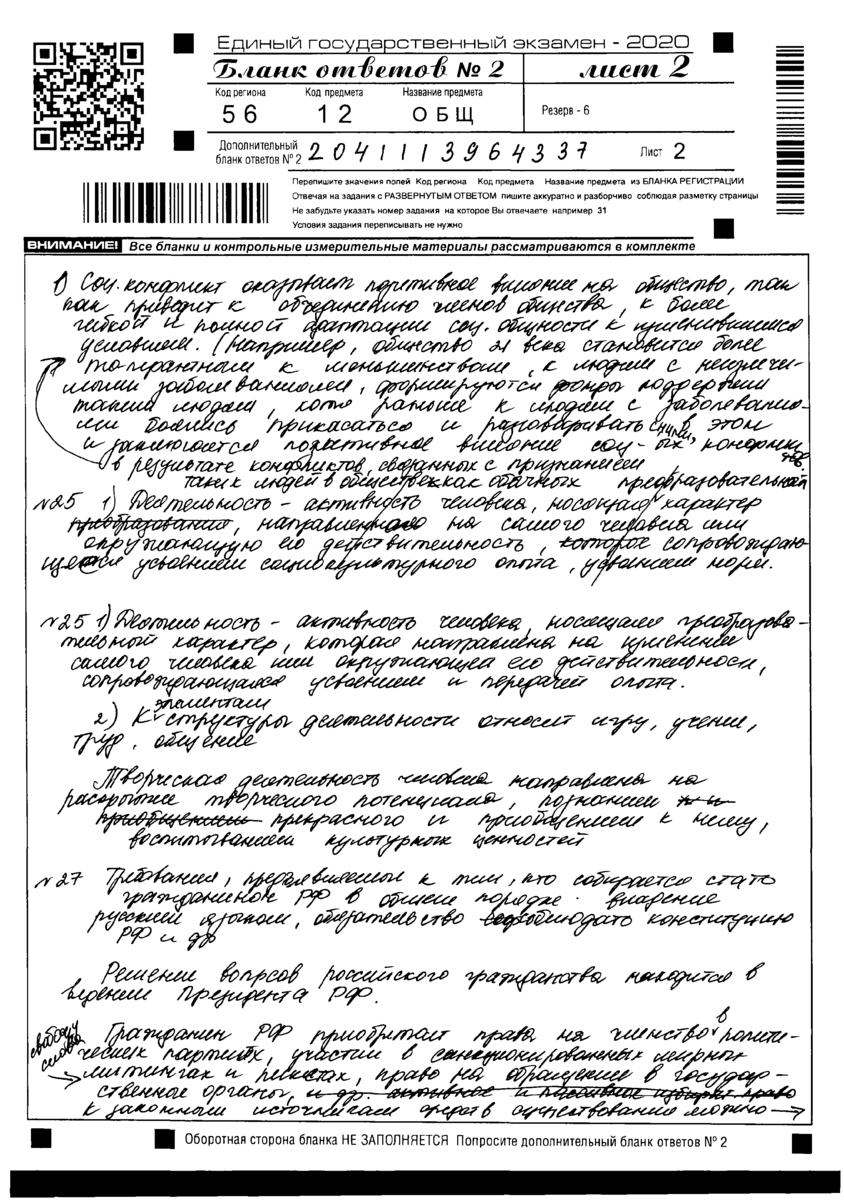 Единый государственный экзамен - 2020
Бланк ответов № 2 лист 2
Код региона Код предмета Название предмета
56 12 ОБЩ Резерв - 6
Дополнительный
бланк ответов № 2 2041113964337 Лист 2
Перепишите значения полей Код региона Код предмета Название предмета из БЛАНКА РЕГИСТРАЦИИ
Отвечая на задания с РАЗВЕРНУТЫМ ОТВЕТОМ пишите аккуратно и разборчиво соблюдая разметку страницы
Не забудьте указать номер задания на которое Вы отвечаете например 31
Условия задания переписывать не нужно
ВНИМАНИЕ! Все бланки и контрольные измерительные материалы рассматриваются в комплекте
1) Соц. конфликт оказывает позитивное влияние на общество, так
как приводит к объединению членов общества, к более
гибкой и полной адаптации соц. общности к изменившимся
условиям. (Например, общество 21 века становится более
толерантным к меньшинствам, к людям с неизлечи-
мыми заболеваниями, формируются фонды поддержки
таких людей, хотя раньше к людям с заболевания-
ми боялись прикасаться и разговаривать с ними, в этом
и заключается позитивное влияние соц-ых конфлик
тов.
в результате конфликтов, связанных с признанием
таких людей в обществе как обычных преобразовательный
№25 1) Деятельность - активность человека, носящая характер
преобразования, направленного на самого человека или
окружающую его действительность, которое сопровождаю-
щееся усвоением социокультурного опыта, усвоением норм.
№25 1) Деятельность - активность человека, носящая преобразова-
тельный характер, которая направлена на изменение
самого человека или окружающей его действительности,
сопровождающаяся усвоением и передачей опыта.
элементам
2) К структуры деятельности относят игру, учение,
труд, общение
Творческая деятельность человека направлена на
раскрытие творческого потенциала, познанием
приобщением прекрасного и приобщением к нему,
воспитыванием культурных ценностей
№27 Требования, предъявляемые к тем, кто собирается стать
гражданином РФ в общем порядке: владение
русским языком, обязательство соблюдать конституцию
РФ и др
Решении вопрсов российского гражданства находится в
ведении Президента РФ.
свободу
слова
Гражданин РФ приобретает права на членство в полити-
ческих партиях, участие в санкционированных мирных
митингах и пикетах, право на обращение в государ-
ственные органы, и др. активное и пассивное избират. право
к законным источникам средств существования можно →
Оборотная сторона бланка НЕ ЗАПОЛНЯЕТСЯ Попросите дополнительный бланк ответов № 2